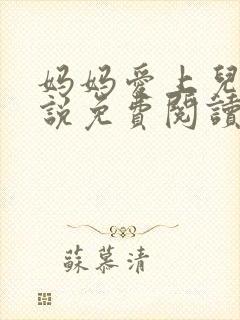 妈妈爱上兒
說免費閱讀
蘇慕清